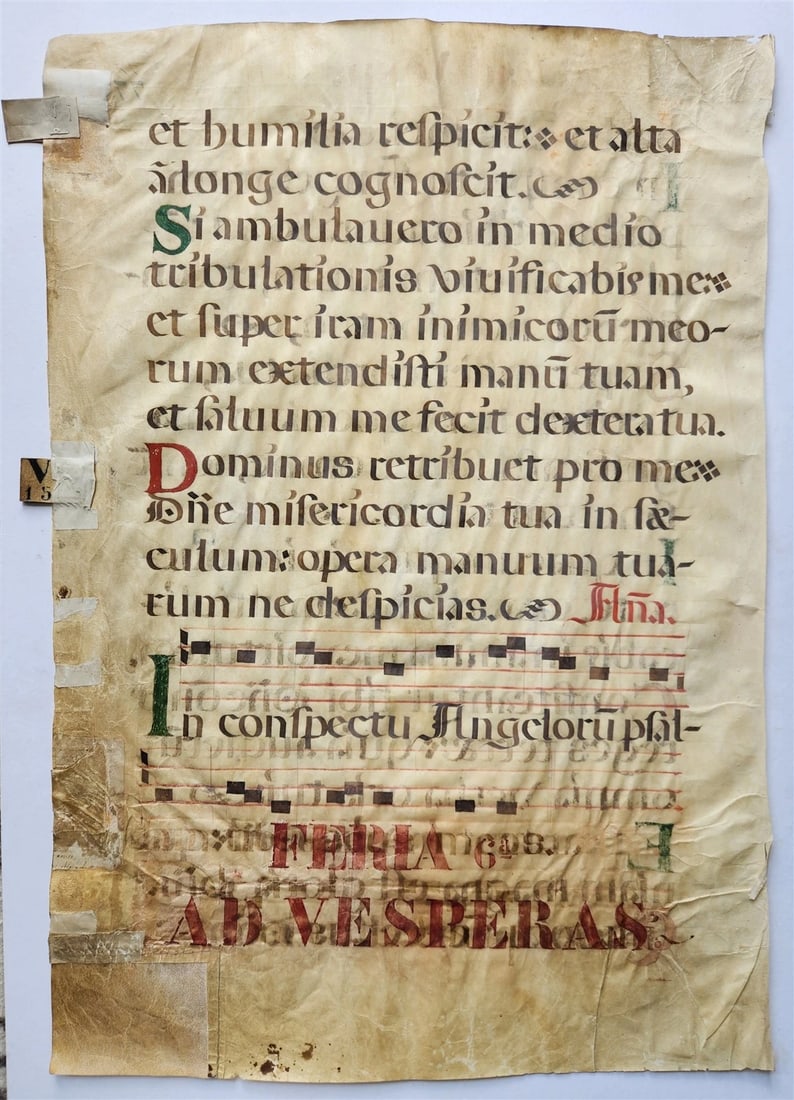 et humilia reſpicit: et alta
ãlonge cognoſcit.
Si ambulauero in medio
tribulationis viuificabis me
et ſuper iram inimicorũ meo-
rum extendiſti manũ tuam,
et ſaluum me fecit dextera tua.
Dominus retribuet pro me
Dñe miſericordia tua in ſæ-
culum: opera manuum tua-
rum ne deſpicias. Aña.
In conſpectu Angelorũ pſal-
FERIA 6ª
AD VESPERAS
V
15